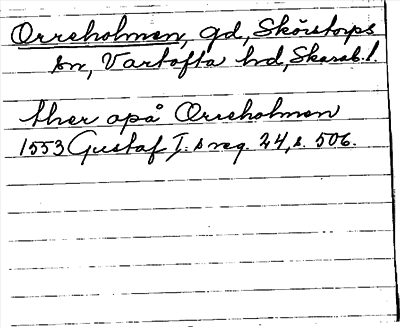 Orreholmen, gd, Skörstorps
sn, Vartofta hd, Skarab. l.
ther opå Orreholmen
1553 Gustaf I:s reg. 24, s. 506.